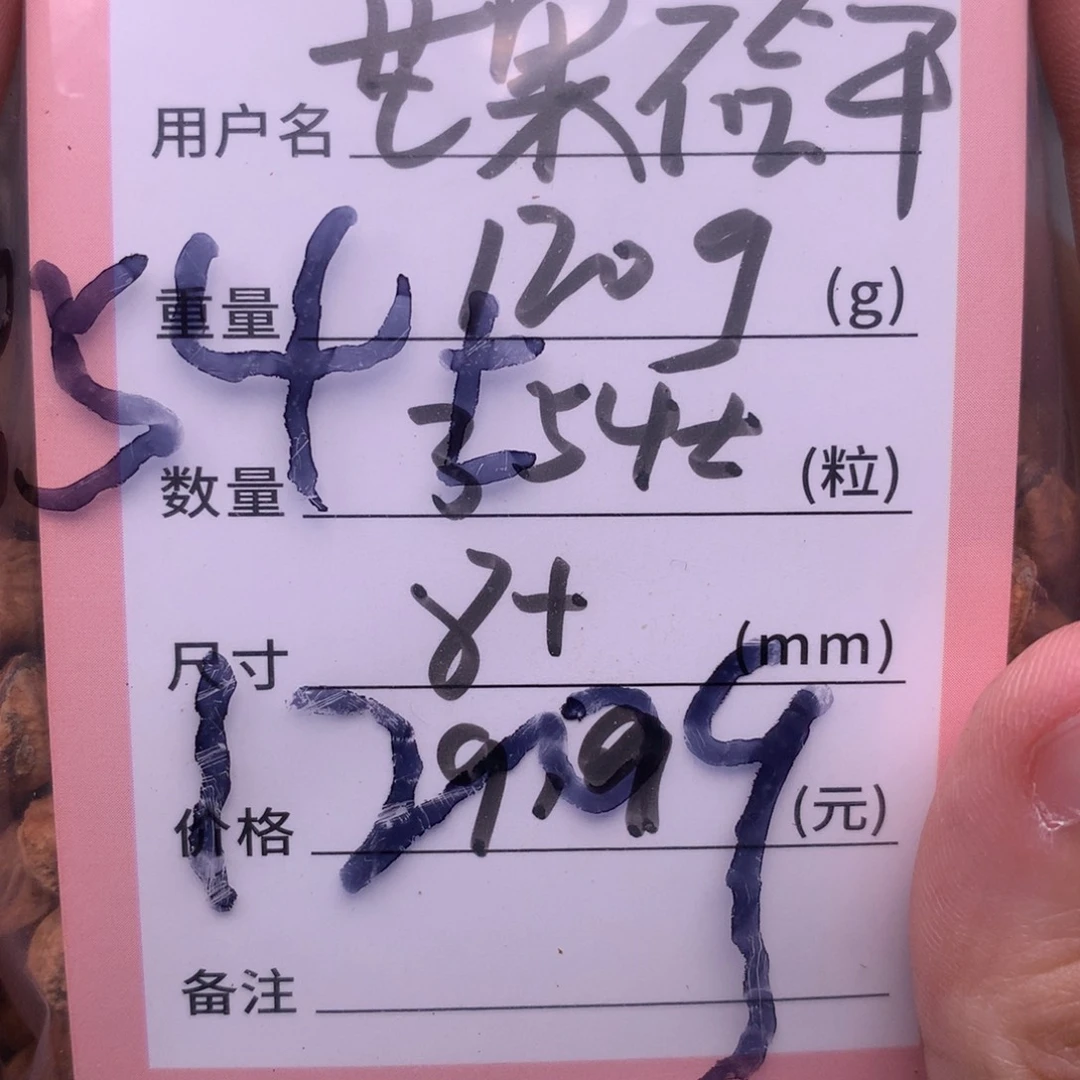 用户名 芒果饼干
重量 120g (g)
数量 354±(粒)
尺寸 8+ (mm)
价格 29.9 (元)
备注
54±
120g